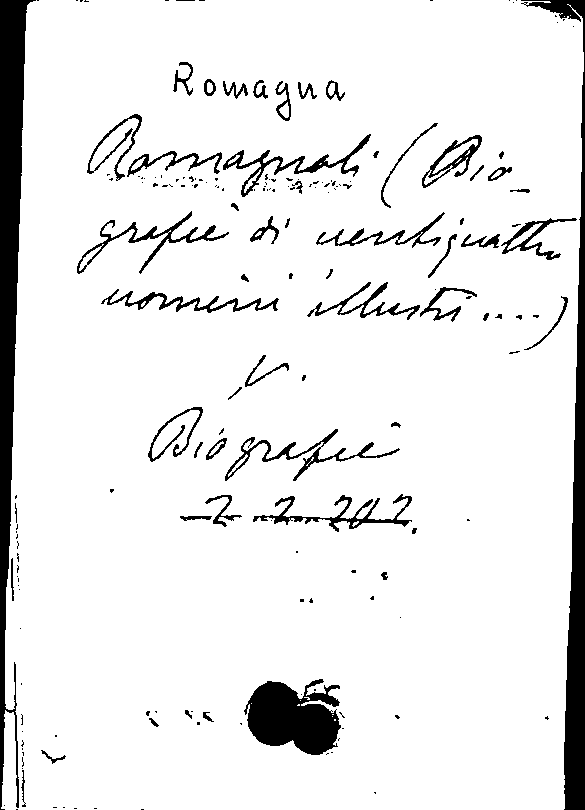 Romagna
Romagnoli (Bio-
grafie di ventiquattro
uomini illustri....)
V.
Biografie
2 2 202.